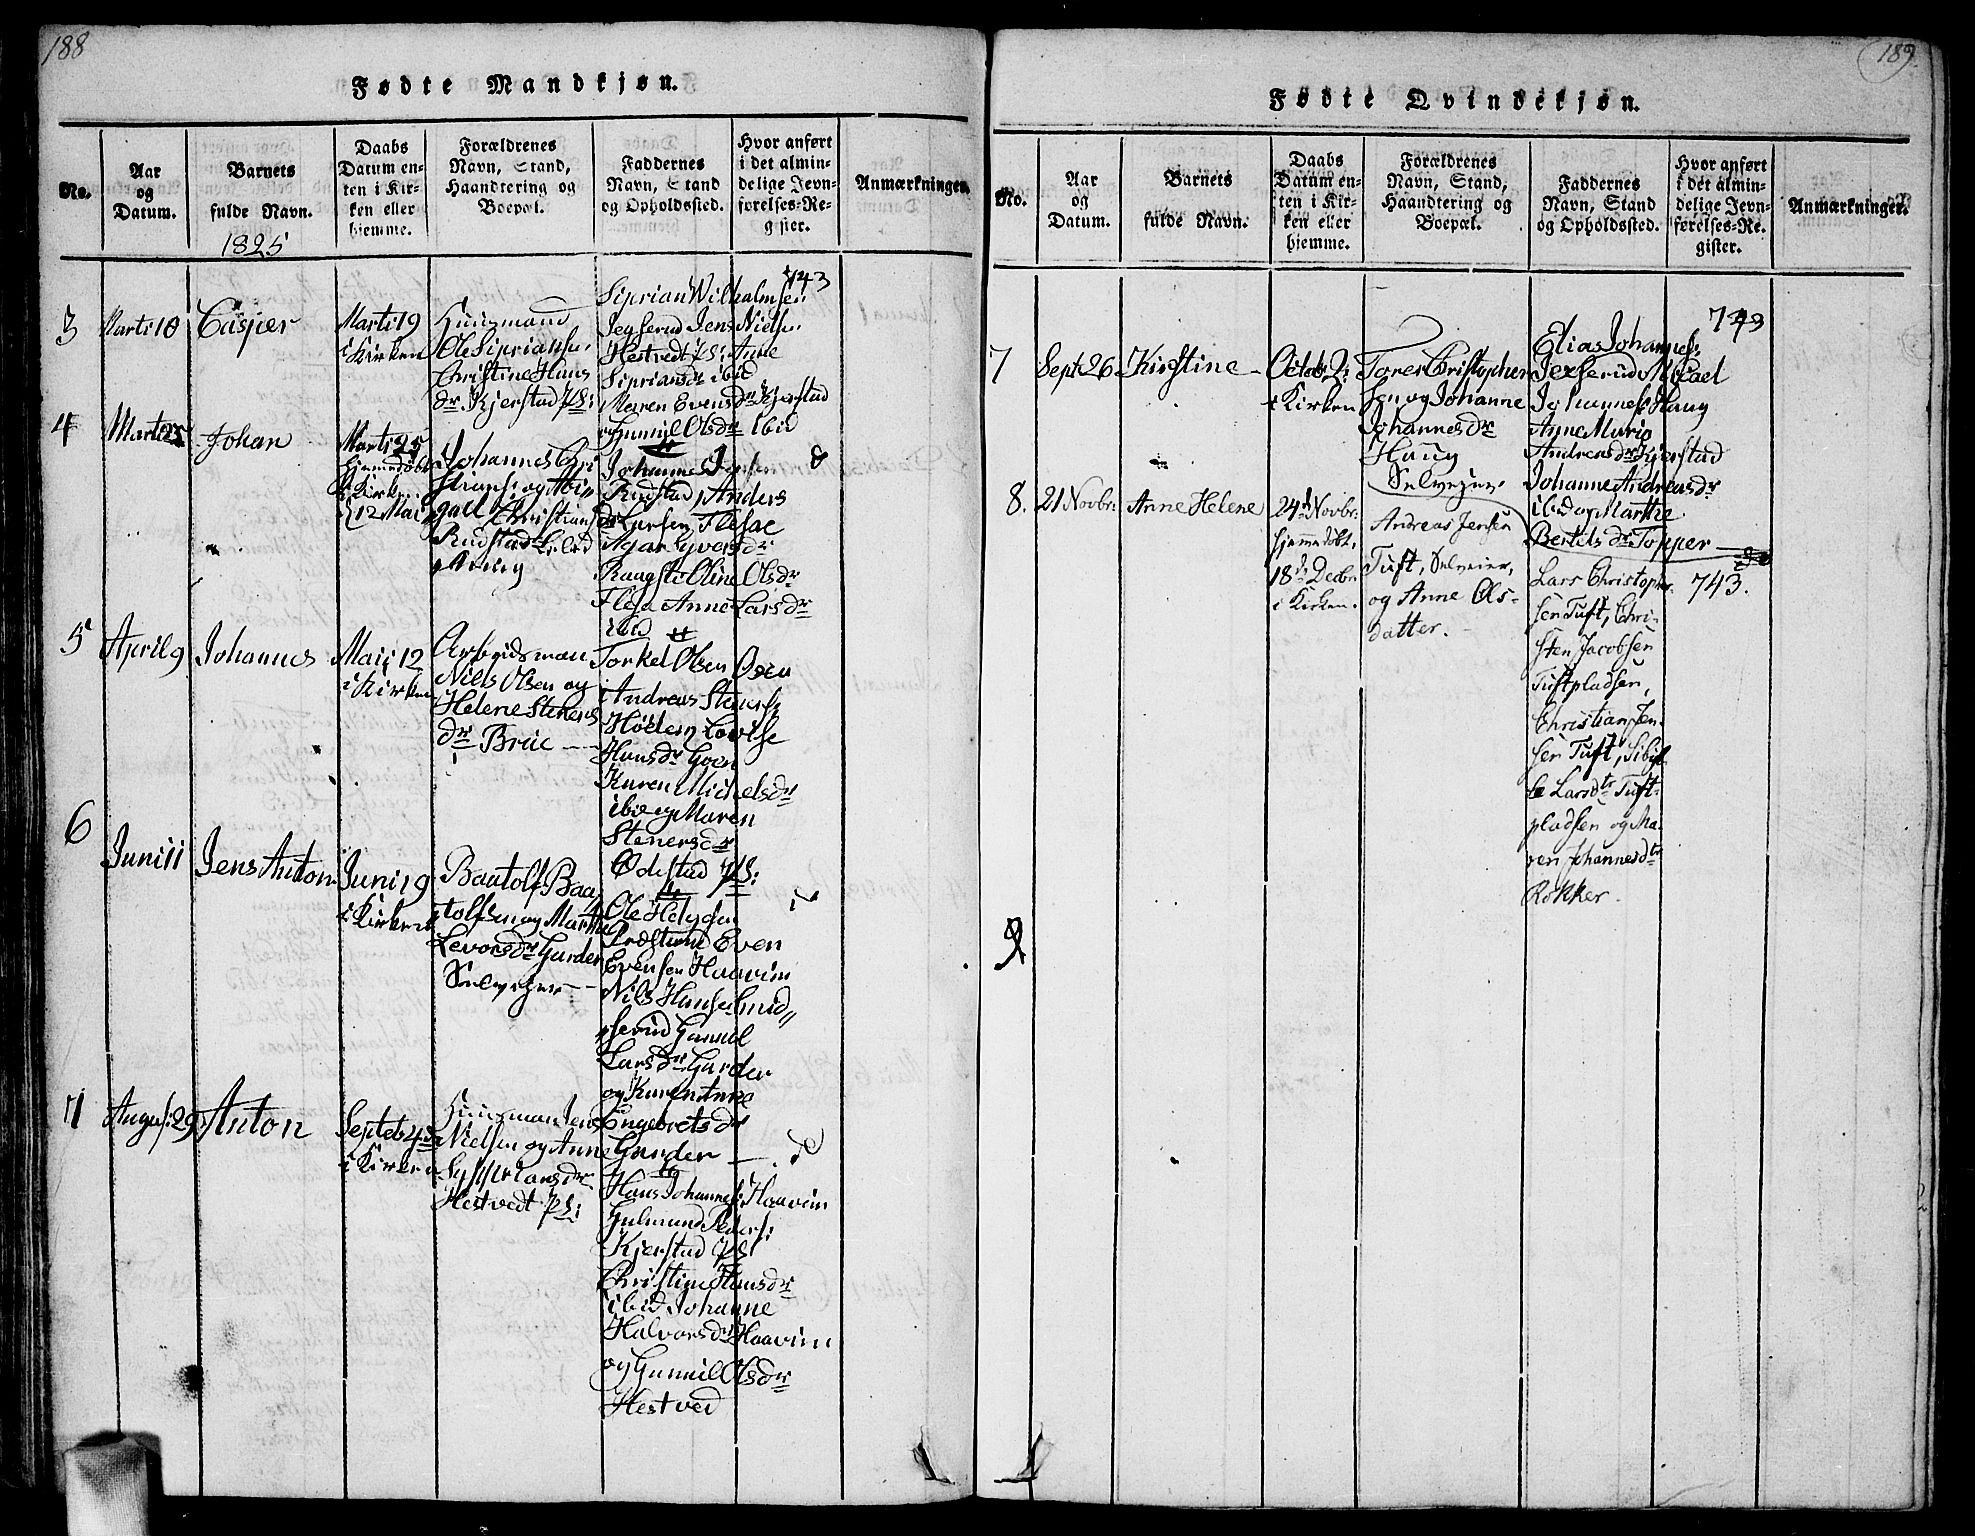 188
Fødte Mandkjøn.
No.
Aar
og
Datum.
Barnets
fulde Navn.
1825
Daabs
Datum en-
ten i Kir-
ken eller
hjemme.
Forældrenes
Navn, Stand,
Haandtering og
Boepæl.
Faddernes
Navn, Stand
og Opholdssted.
Hvor anført
i det almin-
delige Jevn-
førelses-Re-
gister.
Anmærkninger.
3
Marti 10
Casper
Marti 19
i Kirken
Huusmand
Ole Siprians.
Christine Hans
dr Kjerstad
Siprian Wilhalmsen
Jegserud Jens Nielsen
Hestvedt Pl: Anne
Sipriansdr ibid
Maren Evensdr Kjerstad
og Gunnil Olsdr ibid
743
4
Marti 25
Johan
Marti 25
hjemmedöbt
i Kirken
12 Mai
Johannes Chri
stians: og Abi
gael Christians
dr
Rudstad
Johannes
Rudstad, Anders
Larsen Flesae
Olsdr
Flesa Anne Larsdr
ibid
5
April 9
Johannes
Maii 12
i Kirken
Arbeidsman
Niels Olsen og
Helene Steners
dr Brue
Torkel Olsen Oen
Andreas Steners:
Lovise
Hansdr Goen
Karen Michelsdr
ibid og Maren
Stenersdr
Ødestad Pl:
6
Juni 11
Jens Anton
Juni 19
i Kirken
Bautolf Baa
tolfsen og Marthe
Levorsdr Garder
Selveyer
Ole Helgesen
Even
Evensen Haavim
Nils Hansen
Gunnil
Larsdr Garder
og Karen Anne
Engebretsdr
Garder
7
August 29
Anton
Septeb 4de
i Kirken
Huusman Jens
Nielsen og Anne
Sypriansdr
Hestvedt Pl:
Hans Johannes: Haavim
Gulmund Peders:
Kjerstad Pl:
Christine Hansdr
ibid Johanne
Halvorsdr Haavim
og Gunnil Olsdr
Hestved
189
Fødte Qvindekjøn.
No.
Aar
og
Datum.
Barnets
fulde Navn.
Daabs
Datum en-
ten i Kir-
ken eller
hjemme.
Forældrenes
Navn, Stand,
Haandtering og
Boepæl.
Faddernes
Navn, Stand
og Opholdssted.
Hvor anført
i det almin-
delige Jevn-
førelses-Re-
gister.
Anmærkninger.
7
Sept 26
Kirstine
Octob 2:
i Kirken
Tores Christopher
sen og Johanne
Johannesdr
Haug
Selveyer
Elias Johannes:
Jexserud Micael
Johannes: Haug
Anne Marie
Andreasdr Kjerstad
Johanne Andreasdr
ibid og Marthe
Bertelsdr Topper
743
8.
21 Novbr:
Anne Helene
24d Novbr:
hjemmedöbt,
18d Decbr:
i Kirken.
Andreas Jensen
Tuft, Selveier,
og Anne Ols-
datter.
Lars Christopher-
sen Tuft, Chri-
sten Jacobsen
Tuftpladsen,
Christian Jen-
sen Tuft, Sibyl-
le Larsdtr Tuft-
pladsen og Ma-
ren Johannesdtr
Rökker.
743.
9